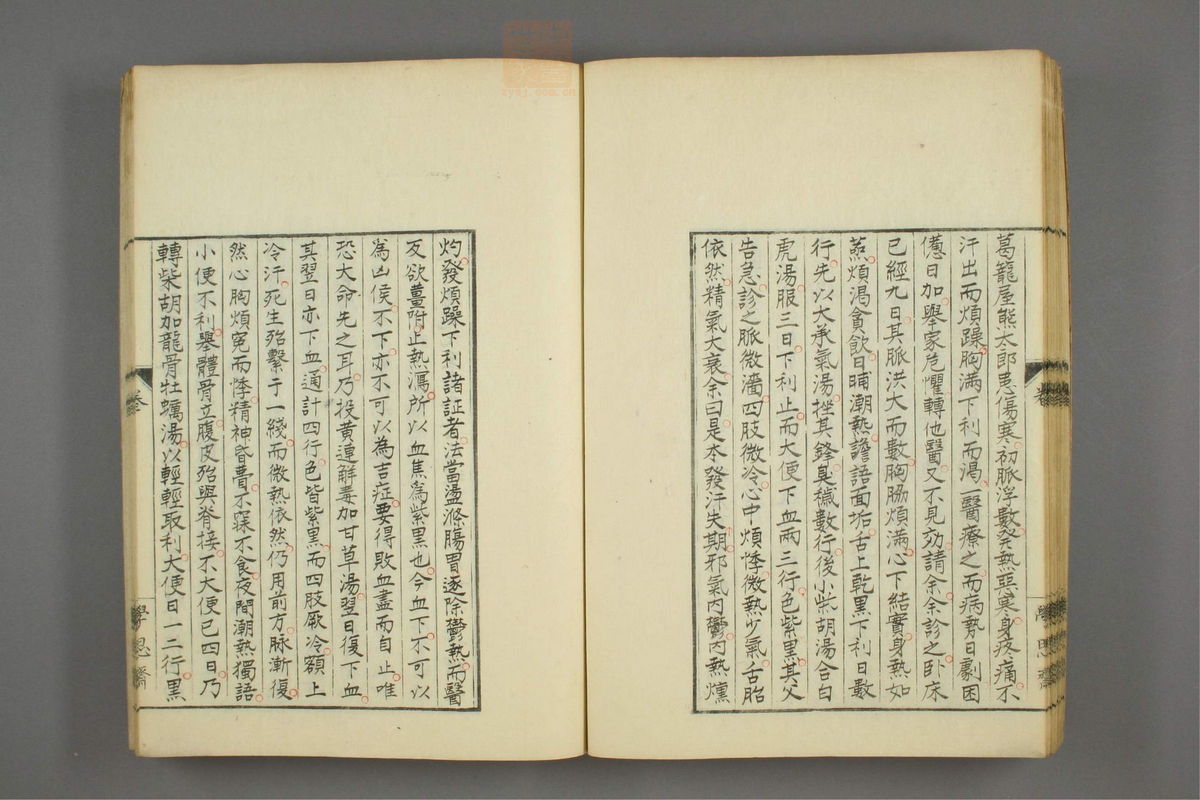 葛籠屋熊太郎患傷寒初脈浮數發熱惡寒身疼痛不
汗出而煩躁胸滿下利而渴一醫療之而病勢日劇困
憊日加舉家危懼轉他醫又不見効請余余診之卧床
已經九日其脈洪大而數胸脇煩滿心下結實身熱如
蒸煩渴貪飲日晡潮熱譫語面垢舌上乾黑下利日數
行先以大承氣湯挫其鋒臭穢數行後小柴胡湯合白
虎湯服三日下利止而大便下血兩三行色紫黑其父
告急診之脈微濇四肢微冷心中煩悸微熱少氣舌胎
依然精氣大衰余曰是本發汗失期邪氣內鬱內熱燻
灼發煩躁下利諸証者法當盪滌腸胃逐除鬱熱而醫
反欲薑附止熱瀉所以血焦為紫黑也今血下不可以
為凶候不下亦不可以為吉症要得敗血盡而自止唯
恐大命先之耳乃投黃連解毒加甘草湯翌日復下血
其翌日亦下血通計四行色皆紫黑而四肢厥冷額上
冷汗死生殆繫于一綫而微熱依然仍用前方脉漸復
然心胸煩冤而悸精神昏瞢不寐不食夜間潮熱獨語
小便不利舉體骨立腹皮殆與脊接不大便已四日乃
轉柴胡加龍骨牡蠣湯以輕輕取利大便日一二行黑
學思齋
zysj.com.cn